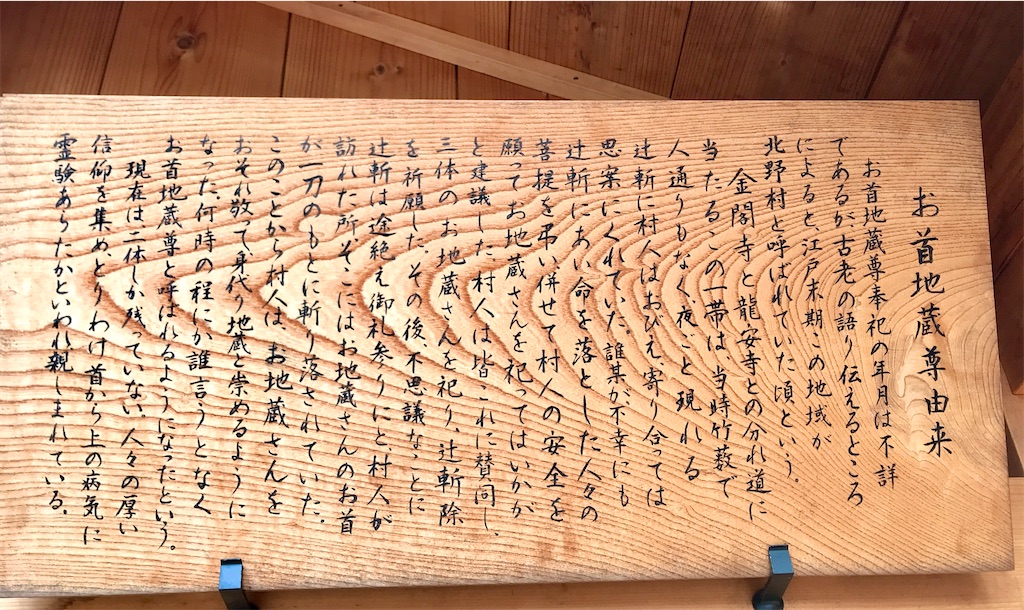 お首地蔵尊由来
お首地蔵尊奉祀の年月は不詳
であるが、古老の語り伝えるところ
によると、江戸末期この地域が
北野村と呼ばれていた頃という。
金閣寺と龍安寺との分れ道に
当たるこの一帯は、当時竹薮で
人通りもなく、夜ごと現れる
辻斬に村人はおびえ、寄り合っては
思案にくれていた。誰某が、不幸にも
辻斬にあい命を落とした人々の
菩提を弔い併せて村人の安全を
願ってお地蔵さんを祀ってはいかが
と建議した。村人は皆これに賛同し、
三体のお地蔵さんを祀り、辻斬除
を祈願した。その後、不思議なことに
辻斬は途絶え御礼参りにと、村人が
訪れた所、そこにはお地蔵さんのお首
が一刀のもとに斬り落されていた。
このことから村人は、お地蔵さんを
おそれ敬て、身代り地蔵と崇めるように
なった。何時の程にか誰言うとなく
お首地蔵尊と呼ばれるようになったという。
現在は二体しか残っていない。人々の厚い
信仰を集め、とりわけ首から上の病気に
霊験あらたかといわれ親しまれている。